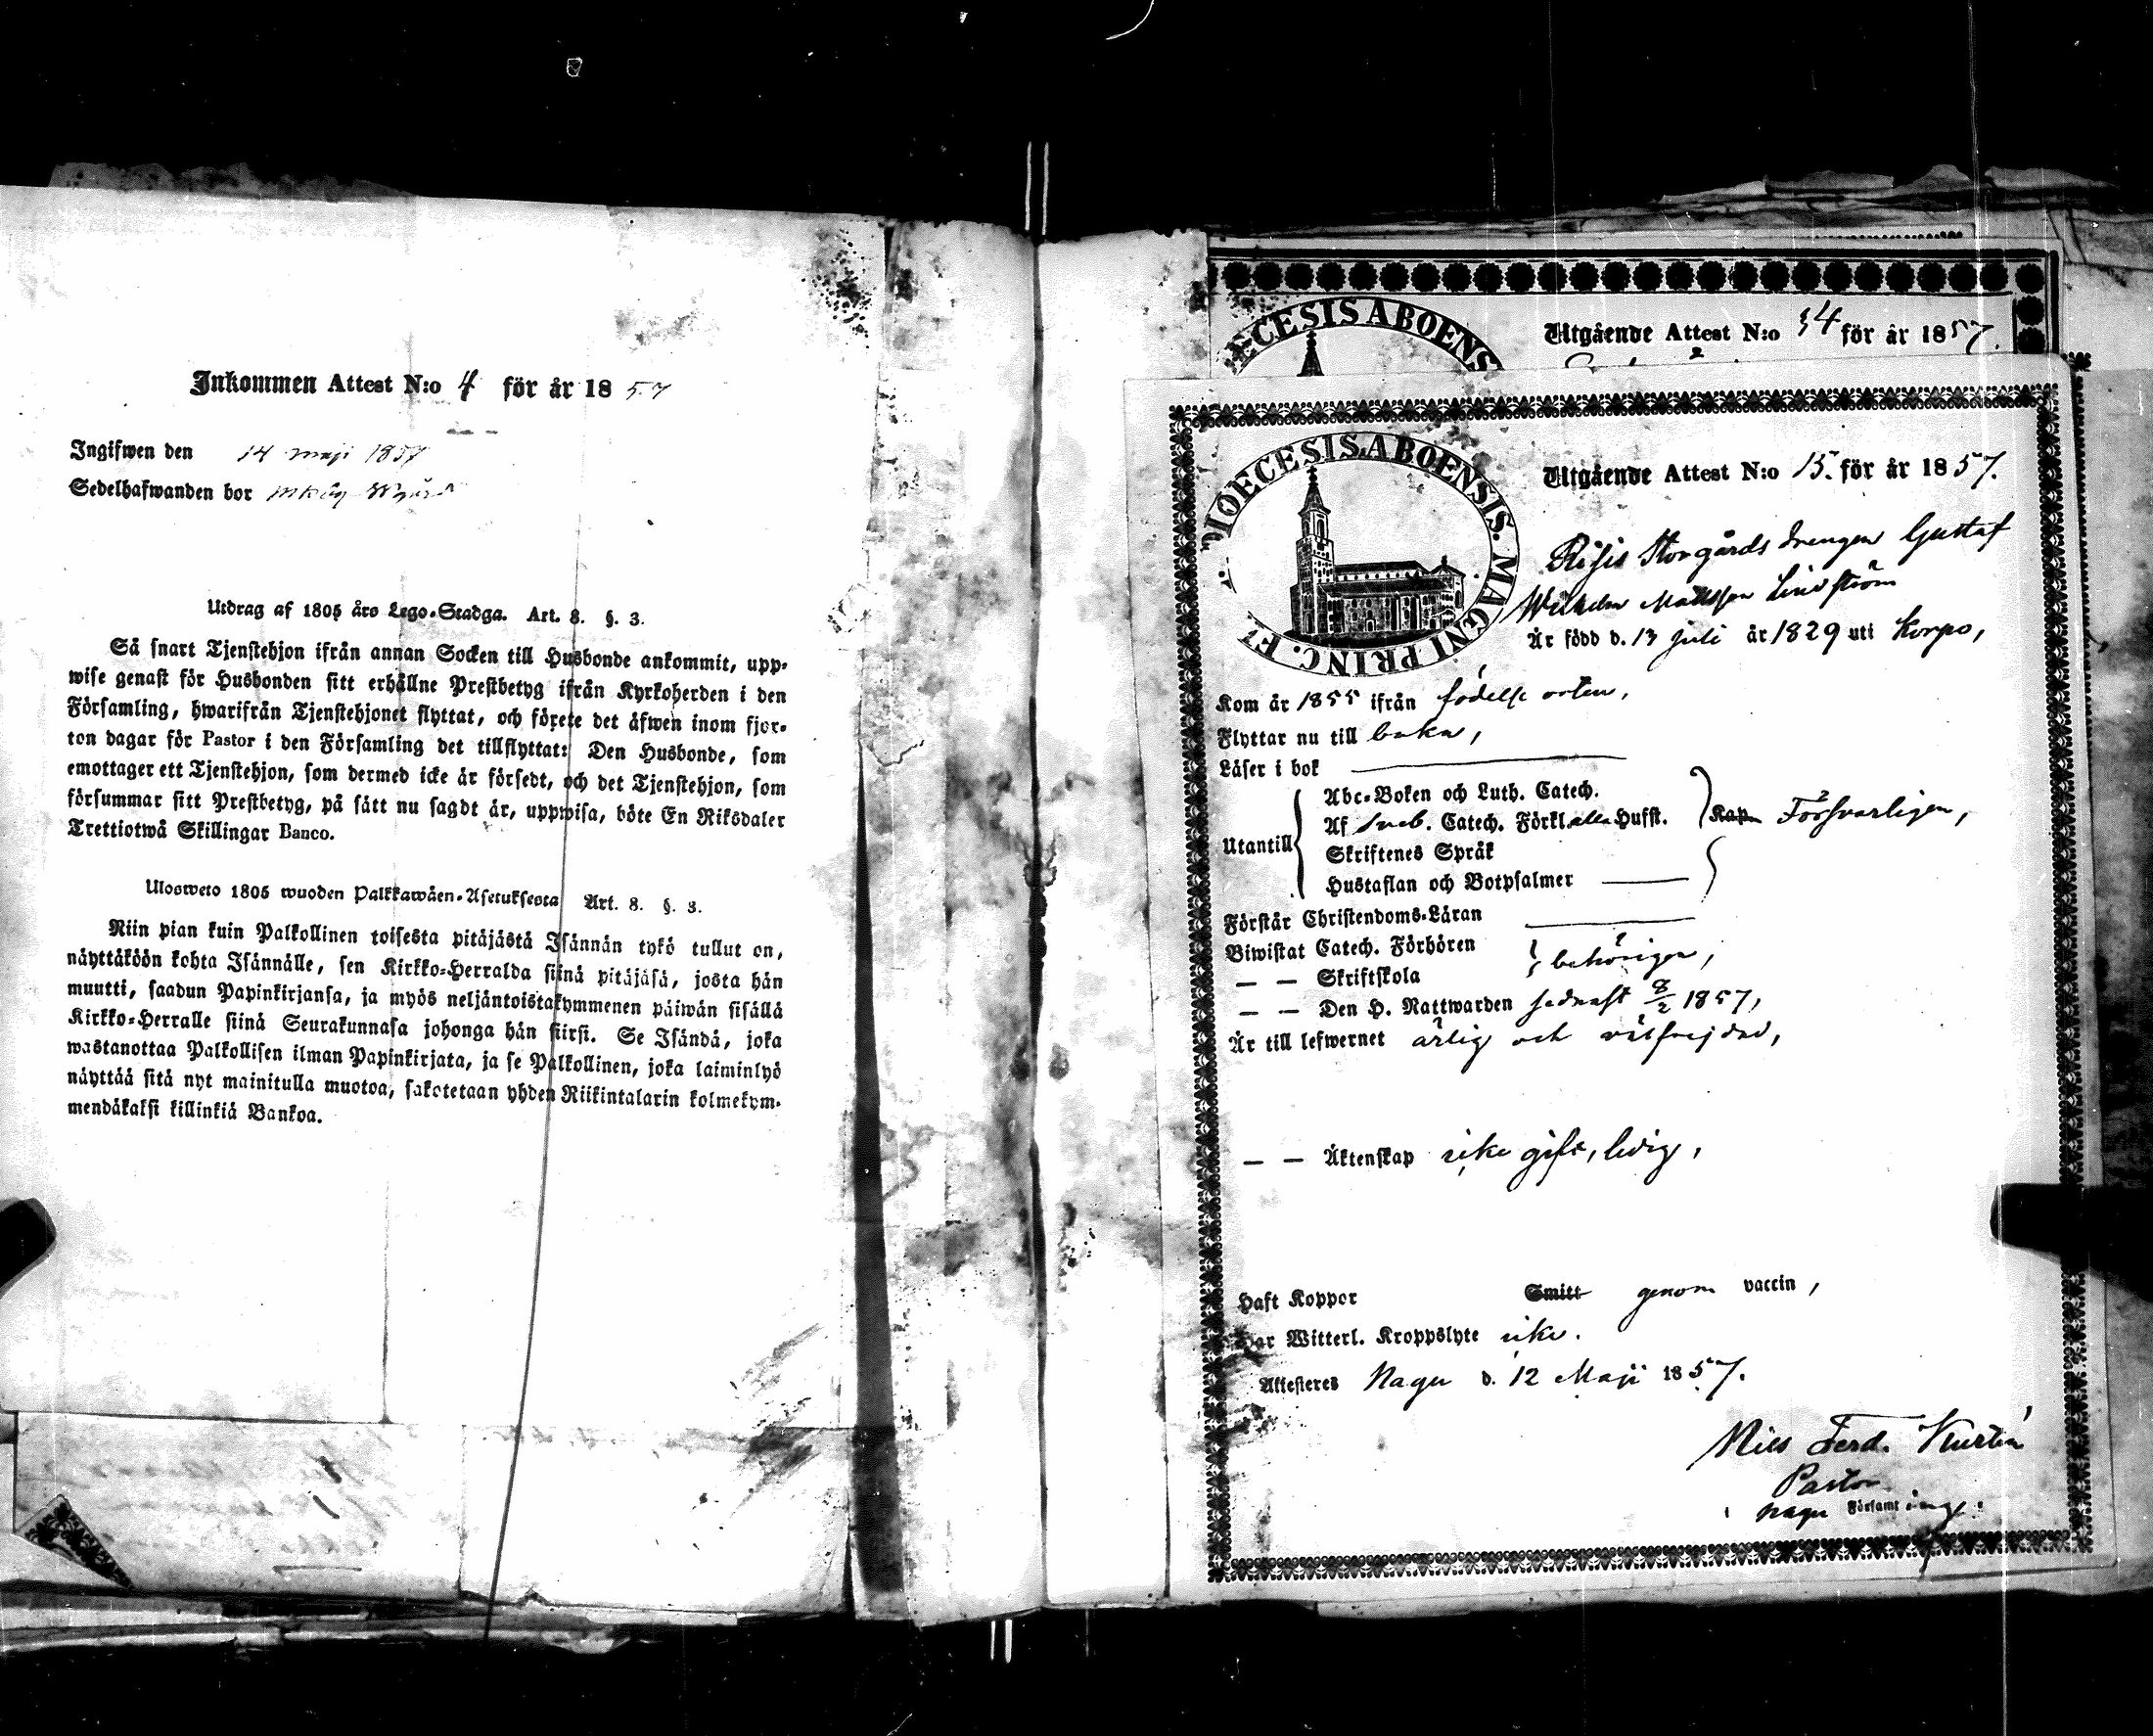 Inkommen Attest N:o 4 för år 1857
Ingifwen den 14 maji 1857
Sedelhafwanden bor
Utdrag af 1805 års Lego-Stadga. Art. 8. §. 3.
Så snart Tjenstehjon ifrån annan Socken till Husbonde ankommit, upp-
wise genast för Husbonden sitt erhållne Prestbetyg ifrån Kyrkoherden i den
Församling, hwarifrån Tjenstehjonet flyttat, och förete det äfwen inom fjor-
ton dagar för Pastor i den Församling det tillflyttat: Den Husbonde, som
emottager ett Tjenstehjon, som dermed icke är försedt, och det Tjenstehjon, som
försummar sitt Prestbetyg, på sätt nu sagdt är, uppwisa, böte En Riksdaler
Trettiotwå Skillingar Banco.
Ulosweto 1805 wuoden Palkkawäen-Asetuksesta Art. 8. §. 3.
Niin pian kuin Palkollinen toisesta pitäjästä Isännän tykö tullut on,
näyttäköön kohta Isännälle, sen Kirkko-Herralda siinä pitäjäsä, josta hän
muutti, saadun Papinkirjansa, ja myös neljäntoistakymmenen päiwän sisällä
Kirkko-Herralle siinä Seurakunnasa johonga hän siirsi. Se Isändä, joka
wastanottaa Palkollisen ilman Papinkirjata, ja se Palkollinen, joka laiminlyö
näyttää sitä nyt mainitulla muotoa, sakotetaan yhden Riikintalarin kolmekym-
mendäkaksi killinkiä Bankoa.
ŒCESIS ABOENS
Utgående Attest N:o 34 för år 1857.
DIOECESIS. ABOENSIS. MAGNI PRINC. F
Utgående Attest N:o 15. för år 1857.
Storgårds drengen Gustaf
Wilhelm Mattsson Lindström
Är född d. 13 juli år 1829 uti Korpo,
Kom år 1855 ifrån födelse orten,
Flyttar nu till baka,
Läser i bok
Abc-Boken och Luth. Catech.
Af Sveb. Catech. Förkl. alla Hufst. Kap. Försvarligen,
Utantill
Skriftenes Språk
Hustaflan och Botpsalmer
Förstår Christendoms-Läran
Biwistat Catech. Förhören
— — Skriftskola behörigen,
— — Den H. Nattwarden sednast 8/2 1857,
Är till lefwernet ärlig och välfrejdad,
— — Äktenskap icke gift, ledig,
Haft Koppor Smitt genom vaccin,
Har Witterl. Kroppslyte icke.
Attesteres Nagu d. 12 Maji 1857.
Nils Ferd.
Pastor
i Nagu Församling.